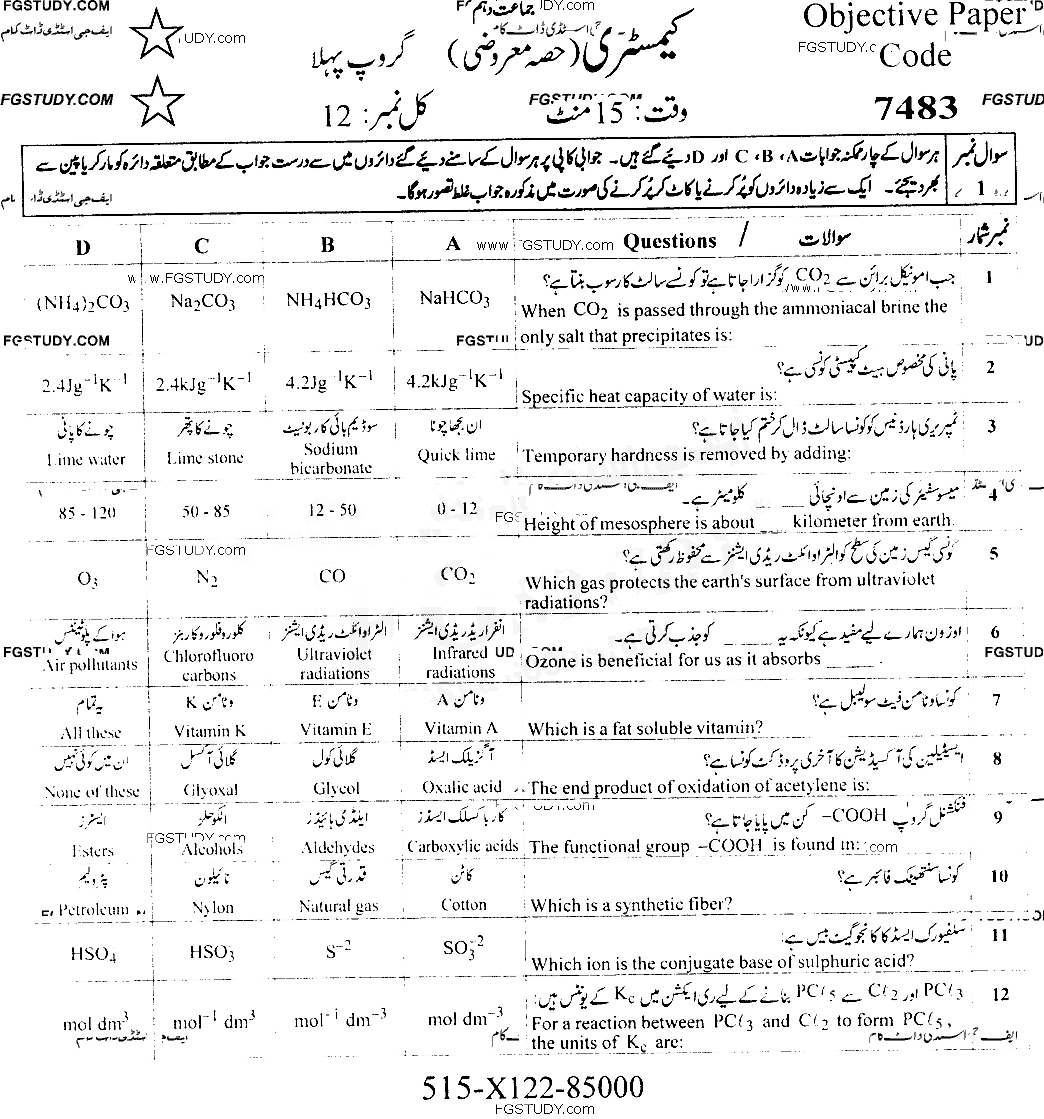 FGSTUDY.COM
جماعت دہم
UDY.com
Objective Paper
ایف جی اسٹڈی ڈاٹ کام
UDY.com
کیمسٹری (حصہ معروضی)
گروپ پہلا
FGSTUDY.c
Code
FGSTUDY.COM
وقت: 15 منٹ
کل نمبر: 12
7483
FGSTUD
سوال نمبر 1
ہر سوال کے چار ممکنہ جوابات A، B، C اور D دیئے گئے ہیں۔ جوابی کاپی پر ہر سوال کے سامنے دیئے گئے دائروں میں سے درست جواب کے مطابق متعلقہ دائرہ کو مارکر یا پین سے
بھر دیجئے۔ ایک سے زیادہ دائروں کو پُر کرنے یا کاٹ کر پُر کرنے کی صورت میں مذکورہ جواب غلط تصور ہوگا۔
D C B A www.FGSTUDY.com Questions / سوالات نمبر شمار
w w.FGSTUDY.com
1 جب امونیکل برائن سے CO₂ کو گزارا جاتا ہے تو کونسے سالٹ کا رسوب بنتا ہے؟
(NH₄)₂CO₃ Na₂CO₃ NH₄HCO₃ NaHCO₃
When CO₂ is passed through the ammoniacal brine the
only salt that precipitates is:
FGSTUDY.COM
2 پانی کی مخصوص ہیٹ کپیسٹی کونسی ہے؟
2.4Jg⁻¹K⁻¹ 2.4kJg⁻¹K⁻¹ 4.2Jg⁻¹K⁻¹ 4.2kJg⁻¹K⁻¹
Specific heat capacity of water is:
3 ٹمپریری ہارڈنیس کو کونسا سالٹ ڈال کر ختم کیا جاتا ہے؟
چونے کا پانی چونے کا پتھر سوڈیم بائی کاربونیٹ ان بجھا چونا
Lime water Lime stone Sodium bicarbonate Quick lime
Temporary hardness is removed by adding:
4 میسوسفیئر کی زمین سے اونچائی ____ کلومیٹر ہے۔
85 - 120 50 - 85 12 - 50 0 - 12
Height of mesosphere is about ___ kilometer from earth.
FGSTUDY.com
5 کونسی گیس زمین کی سطح کو الٹراوائلٹ ریڈی ایشنز سے محفوظ رکھتی ہے؟
O₃ N₂ CO CO₂
Which gas protects the earth's surface from ultraviolet
radiations?
6 اوزون ہمارے لیے مفید ہے کیونکہ یہ ____ کو جذب کرتی ہے۔
ہوا کے پلوٹینٹس کلوروفلوروکاربنز الٹراوائلٹ ریڈی ایشنز انفراریڈ ریڈی ایشنز
Air pollutants Chlorofluoro carbons Ultraviolet radiations Infrared radiations
Ozone is beneficial for us as it absorbs _____.
FGSTUD
7 کونسا وٹامن فیٹ سولیبل ہے؟
یہ تمام وٹامن K وٹامن E وٹامن A
All these Vitamin K Vitamin E Vitamin A
Which is a fat soluble vitamin?
8 ایسیٹیلین کی آکسیڈیشن کا آخری پروڈکٹ کونسا ہے؟
ان میں کوئی نہیں گلائی آکسل گلائی کول آگزیلک ایسڈ
None of these Glyoxal Glycol Oxalic acid
The end product of oxidation of acetylene is:
9 فنکشنل گروپ –COOH کن میں پایا جاتا ہے؟
ایسٹرز الکوحلز ایلڈی ہائیڈز کاربا کسلک ایسڈز
FGSTUDY.com
Esters Alcohols Aldehydes Carboxylic acids
The functional group –COOH is found in:
10 کونسا سنتھیٹک فائبر ہے؟
پٹرولیم نائیلون قدرتی گیس کاٹن
Petroleum Nylon Natural gas Cotton
Which is a synthetic fiber?
11 سلفیورک ایسڈ کا کانجوگیٹ بیس ہے:
HSO₄ HSO₃⁻ S⁻² SO₃⁻²
Which ion is the conjugate base of sulphuric acid?
12 PCℓ₃ اور Cℓ₂ سے PCℓ₅ بنانے کے لیے ری ایکشن میں Kc کے یونٹس ہیں:
mol dm³ mol⁻¹ dm³ mol⁻¹ dm⁻³ mol dm⁻³
For a reaction between PCℓ₃ and Cℓ₂ to form PCℓ₅,
the units of Kc are:
515-X122-85000
FGSTUDY.com